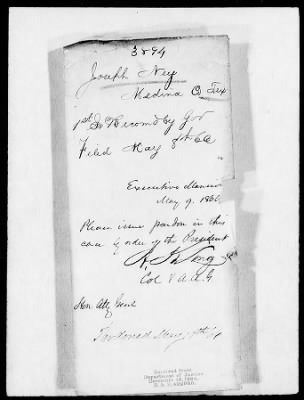 3894
Joseph Ney
Medina Co Tex
Recomd by Gov
Filed May 8th 66
Executive Mansion
May 9, 1866.
Please issue pardon in this
case by order of the President
Col & A.A.G
Hon Atty Genl
Pardoned May 9th 66
Received from
Department of Justice